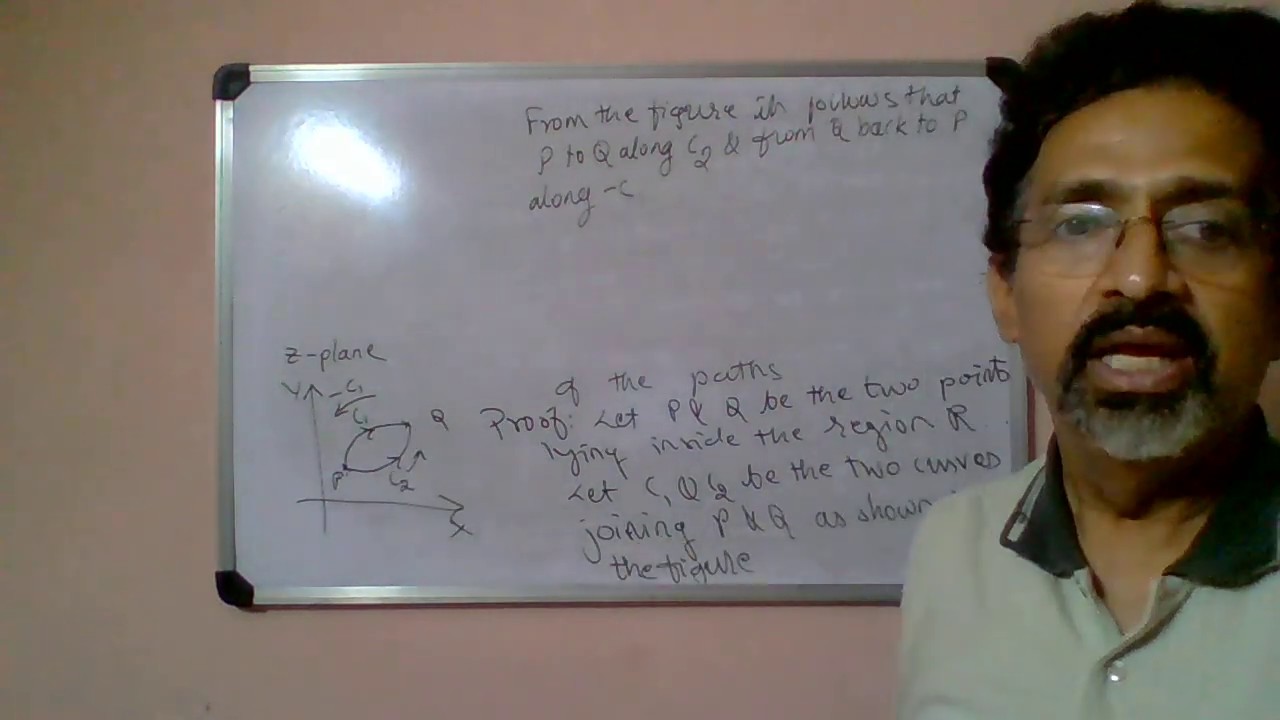 From the figure it follows that
P to Q along C2 & from Q back to P
along -C
z-plane
Y
-C1
C1
Q
P
C2
X
of the paths
Proof: Let P & Q be the two points
lying inside the region R
Let C1 & C2 be the two curves
joining P & Q as shown
the figure